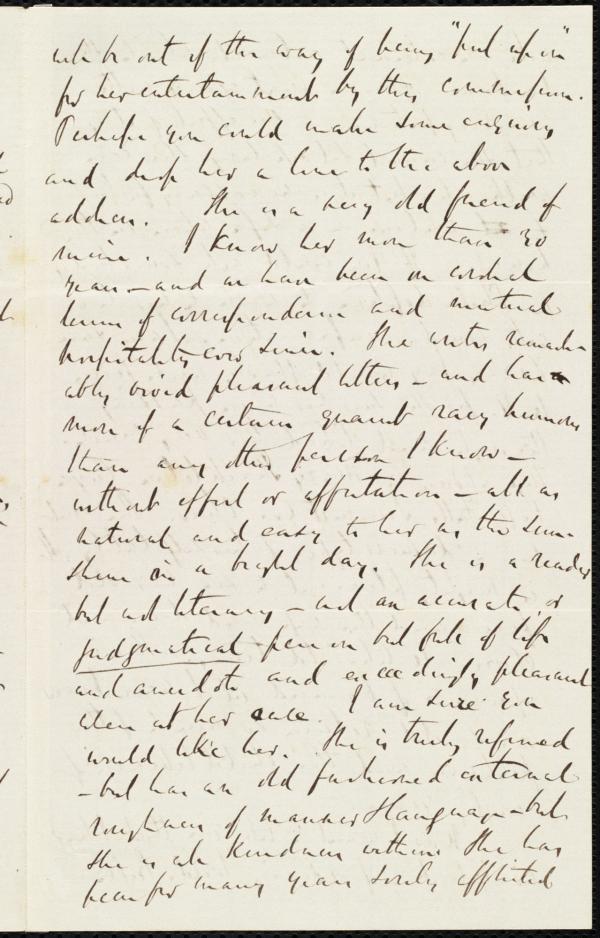 will be out of the way of being "put upon"
for her entertainment by this commission.
Perhaps you could make some enquiry
and drop her a line to the above
address. She is a very old friend of
mine. I know her more than 30
years – and we have been on cordial
terms of correspondence and mutual
hospitality ever since. She writes remark-
ably vivid pleasant letters – and has
more of a certain quaint racy humour
than any other person I know –
without effort or affectation – all as
natural and easy to her as the sun-
shine in a bright day. She is a reader
but not literary – not an accurate or
judgmatical person but full of life
and anecdote and exceedingly pleasant
when at her ease. I am sure you
would like her. She is truly refined
– but has an old fashioned external
roughness of manner & language – but
she is all kindness within. She has
been for many years sorely afflicted